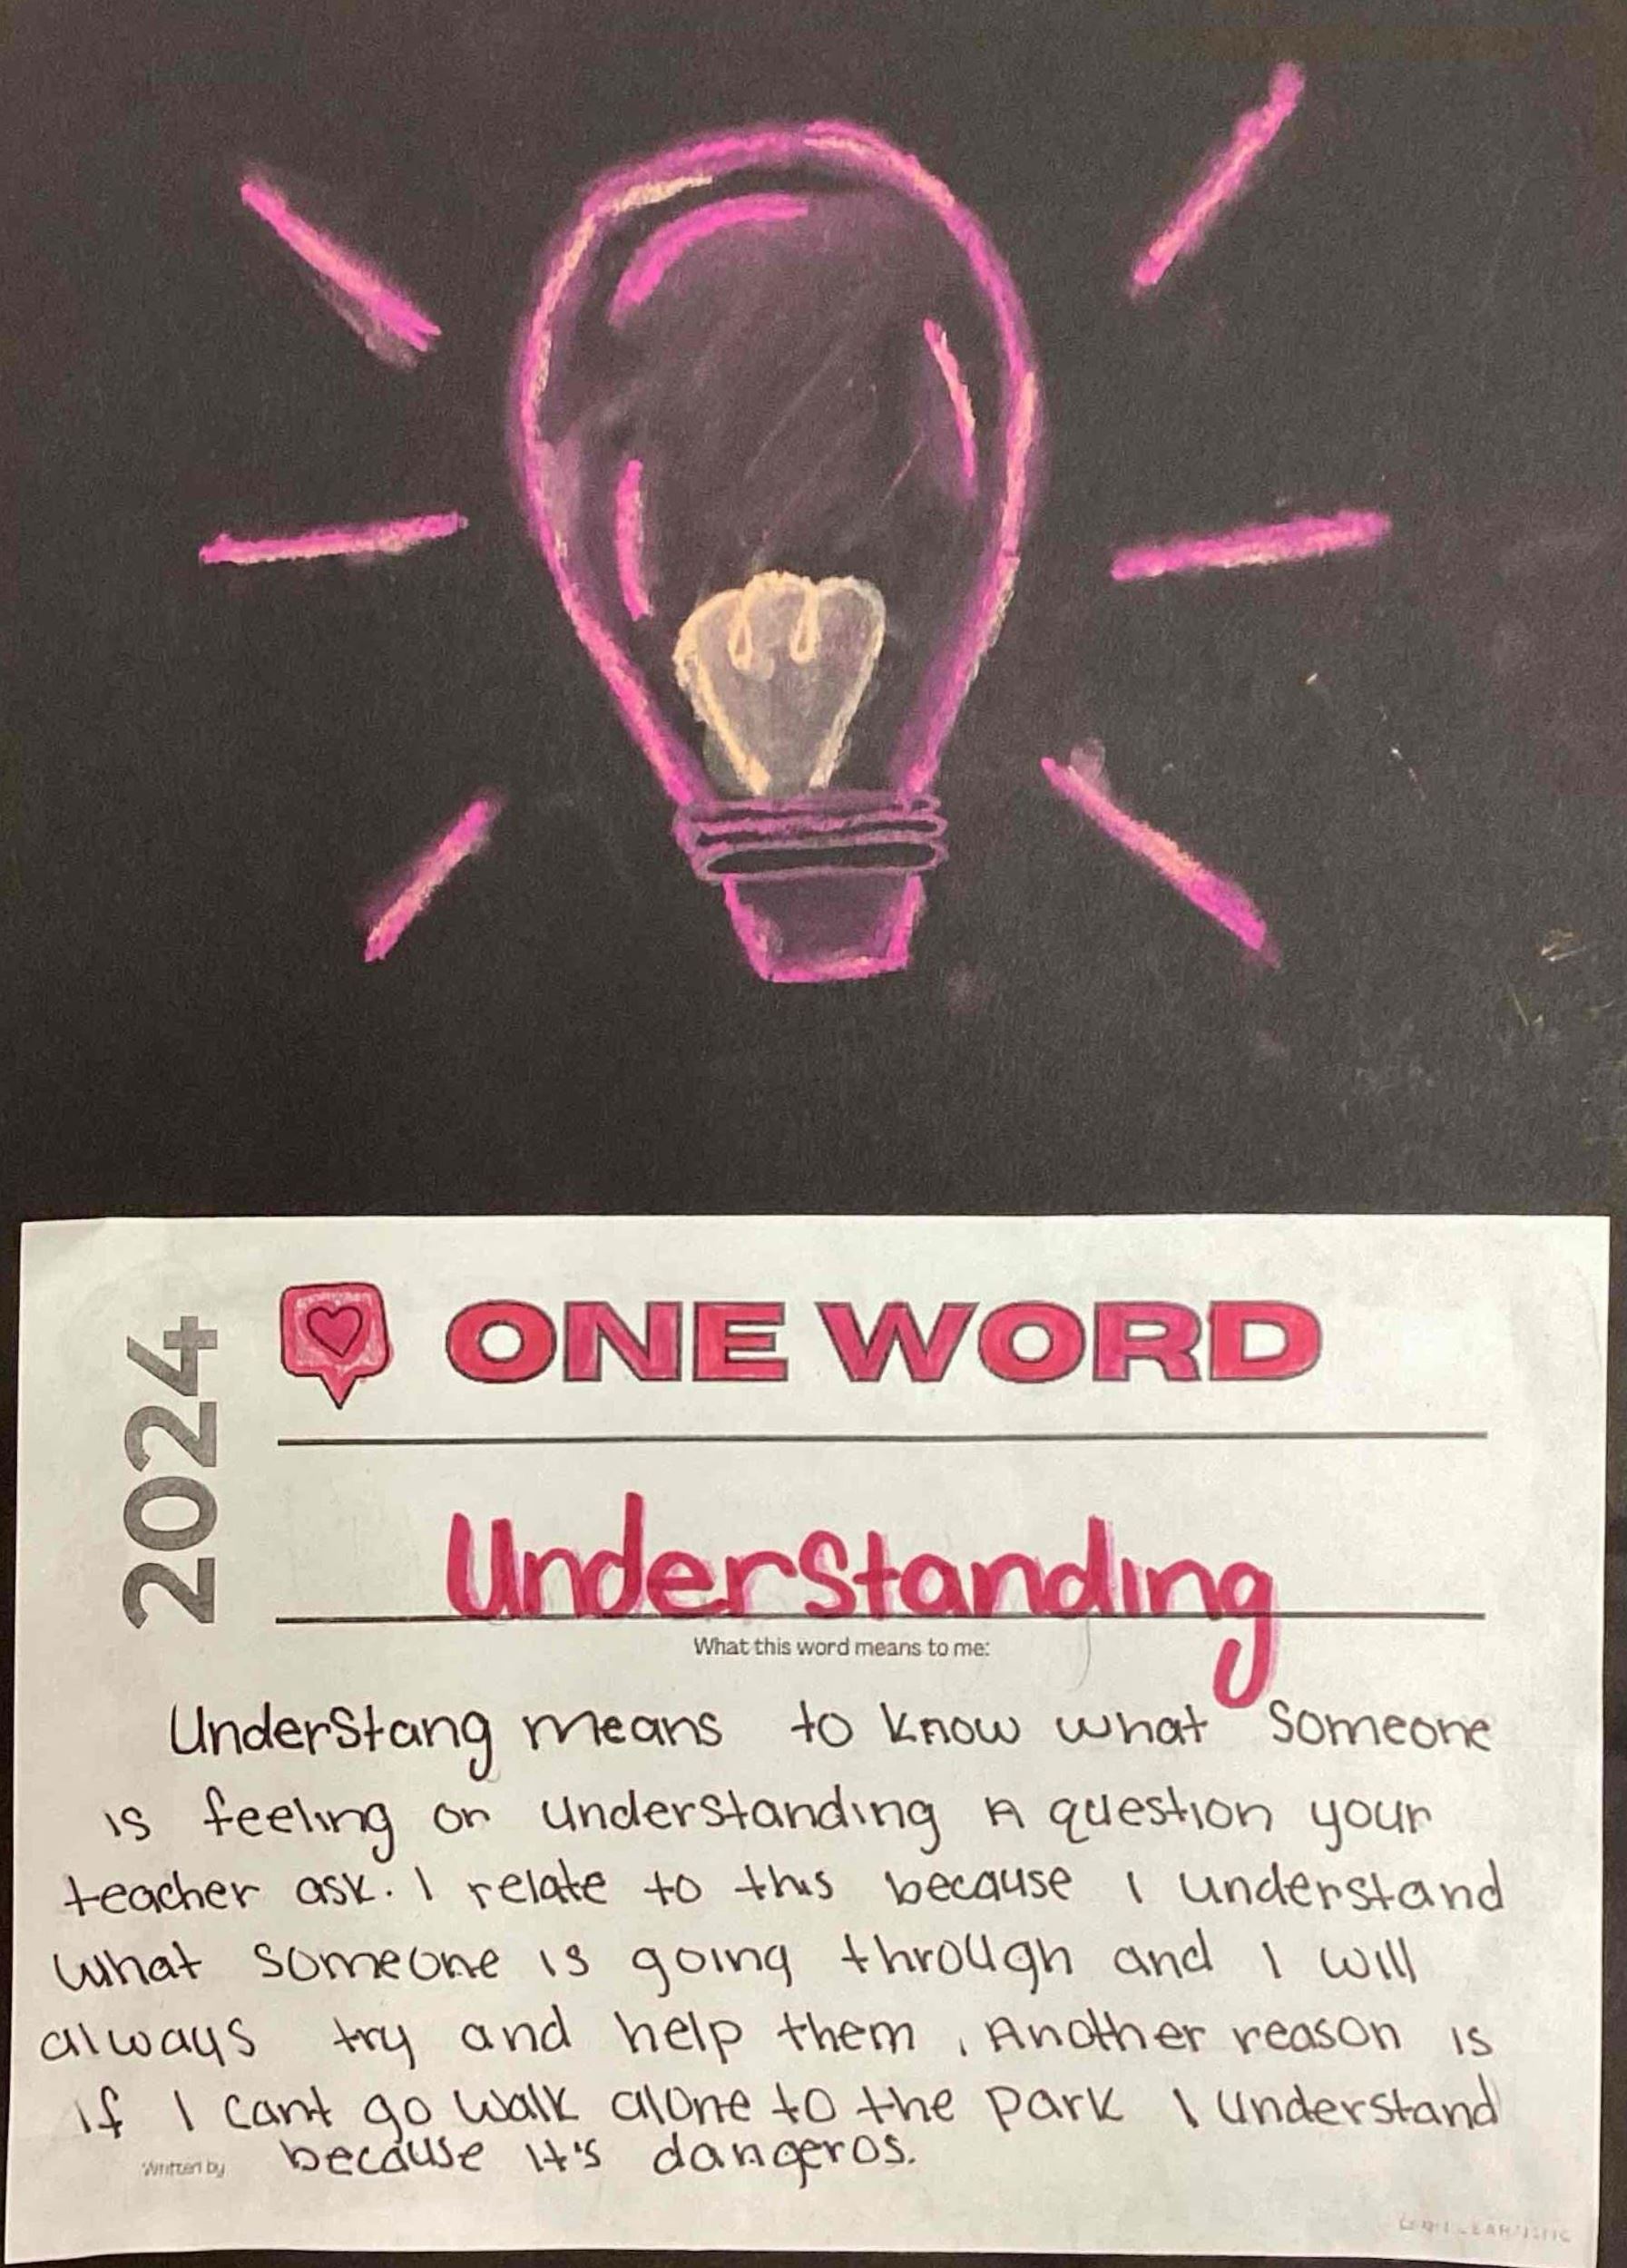 2024
ONE WORD
Understanding
What this word means to me:
Understang means to know what someone
is feeling or understanding A question your
teacher ask. I relate to this because I understand
what someone is going through and I will
always try and help them. Another reason is
if I cant go walk alone to the park I understand
because it's dangeros.
Written by